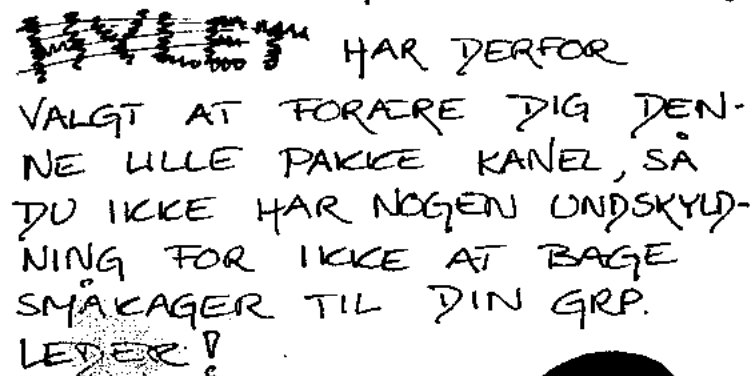 HYLET HAR DERFOR
VALGT AT FORÆRE DIG DEN-
NE LILLE PAKKE KANEL, SÅ
DU IKKE HAR NOGEN UNDSKYLD-
NING FOR IKKE AT BAGE
SMÅKAGER TIL DIN GRP.
LEDER!